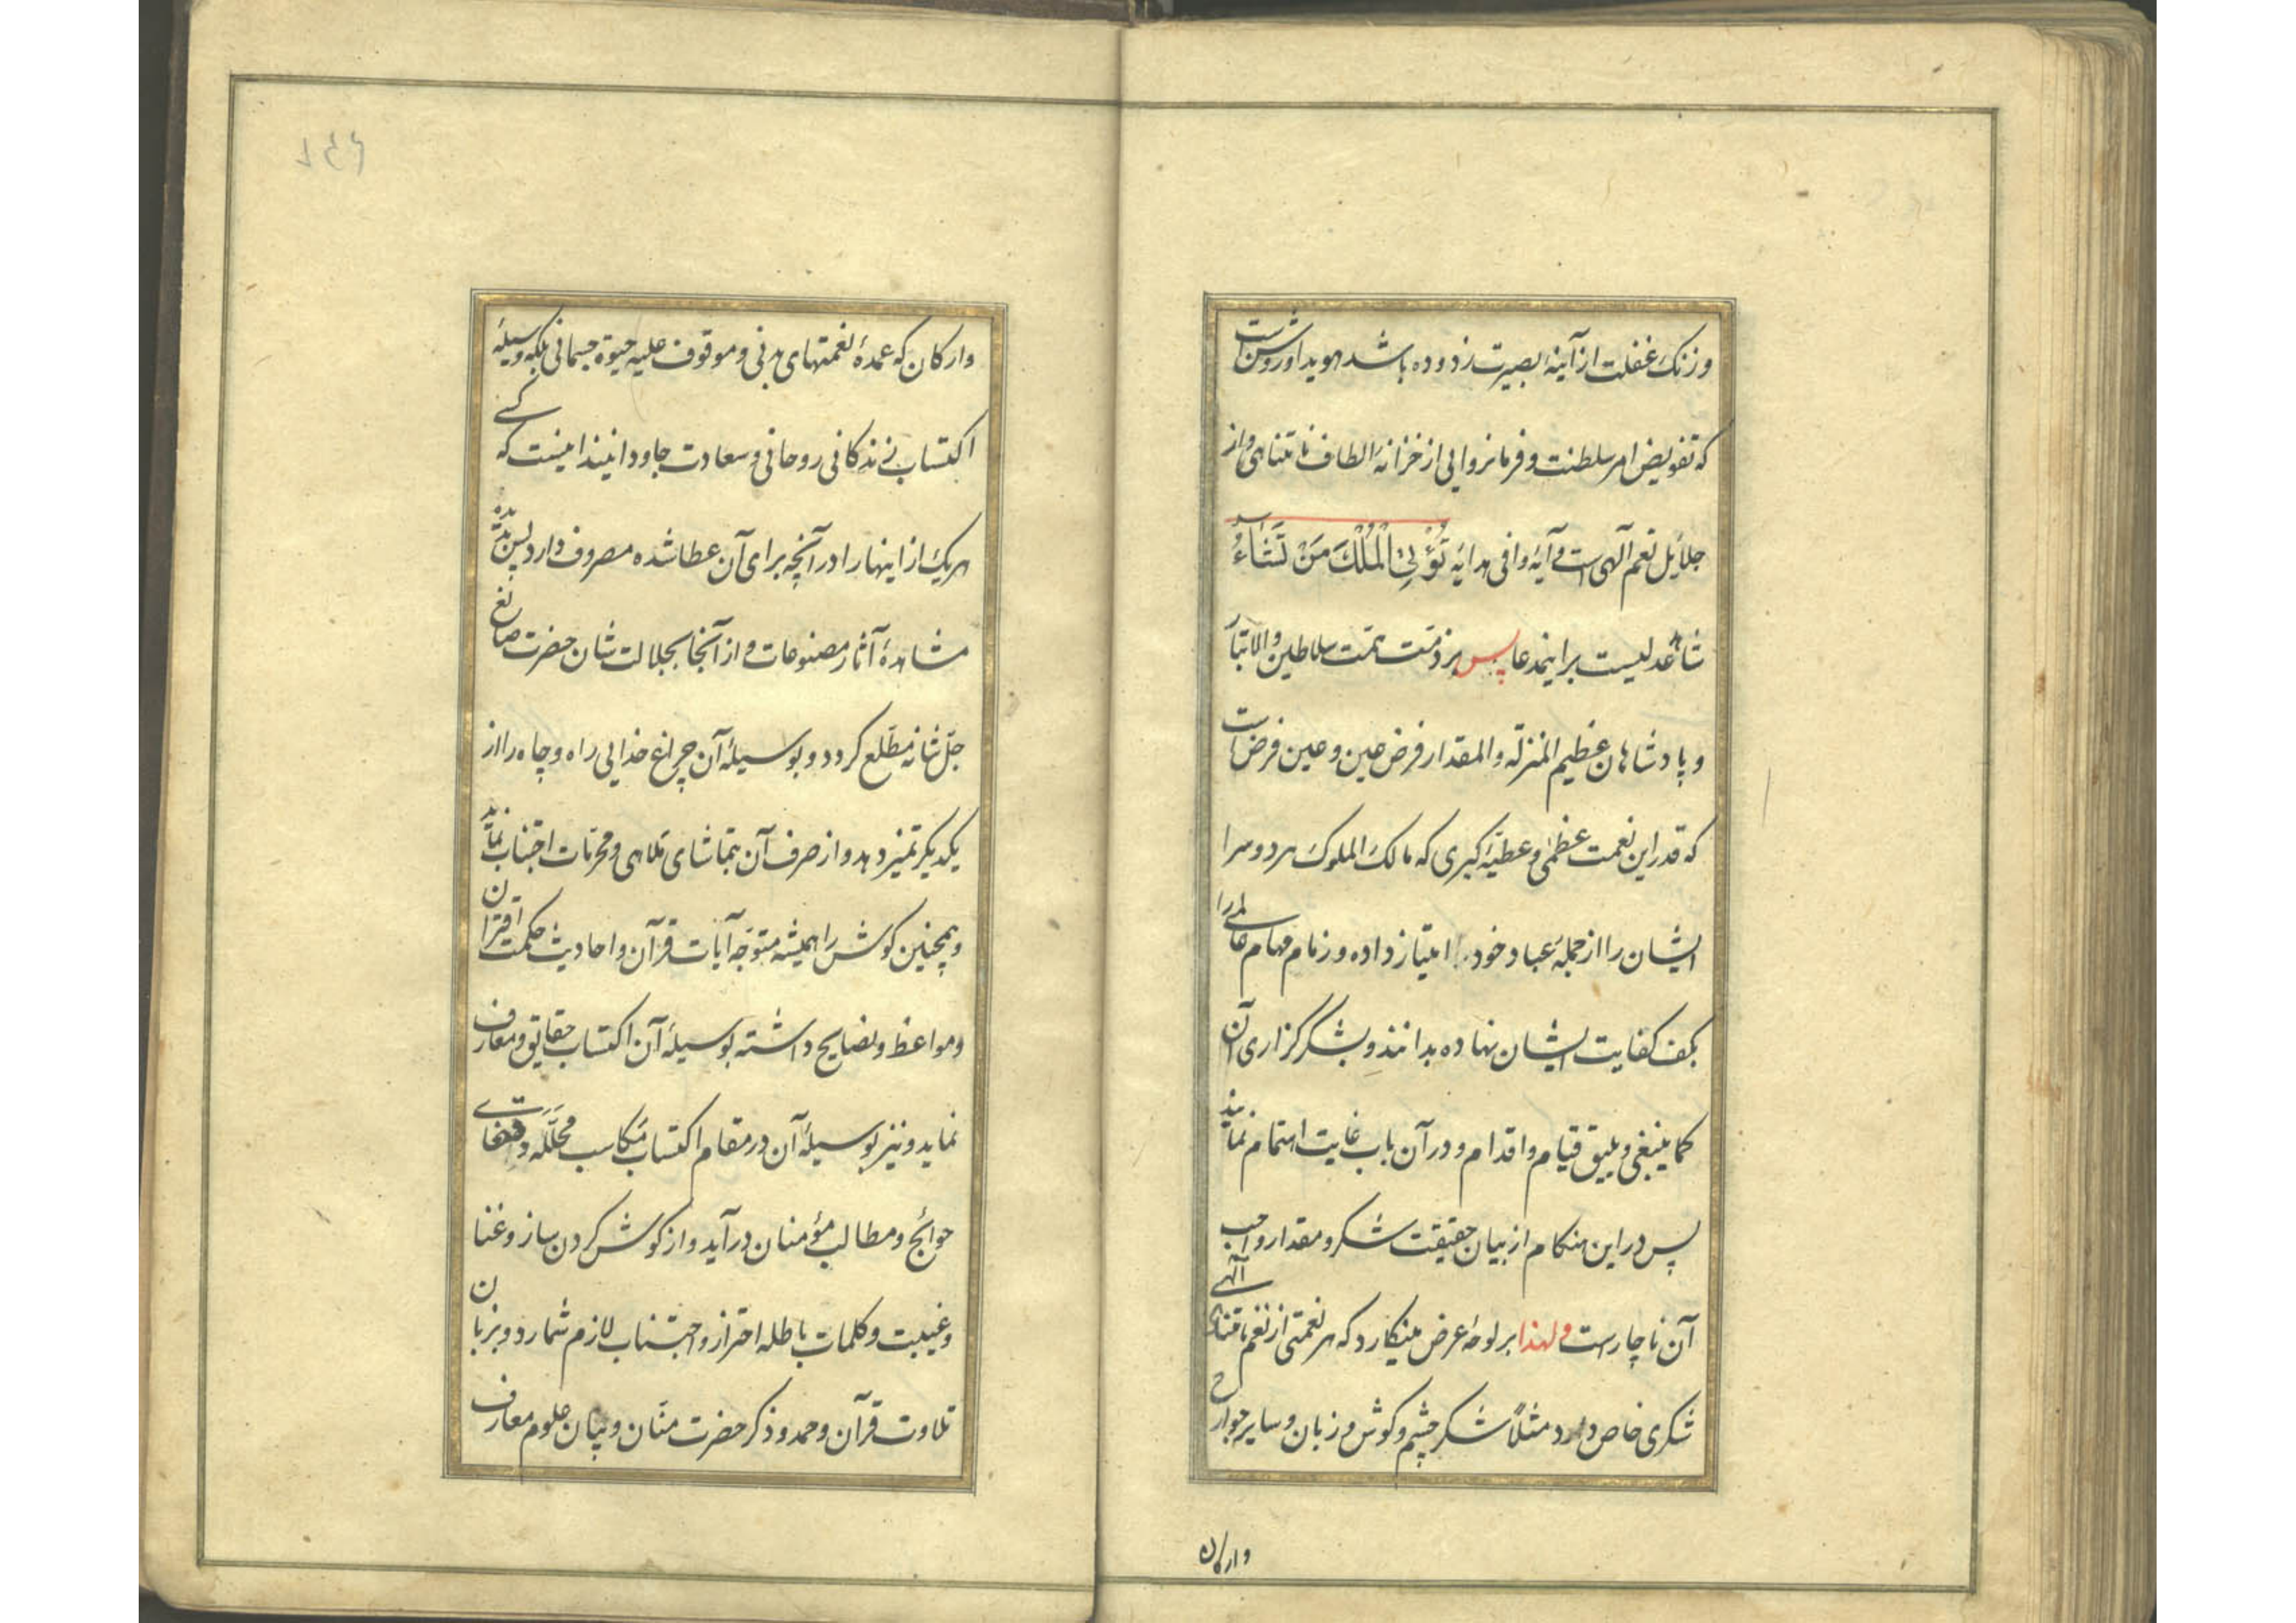 و زنک غفلت از آینهٔ بصیرت زدوده باشد هویدا و روشن است
که تفویض امر سلطنت و فرمانروایی از خزانهٔ الطاف نامتناهی و از
جلایل نعم آلهی است و آیهٔ وافی هدایه تُؤْتِی الْمُلْکَ مَنْ تَشَاءُ
شاهد عدلیست بر اینمدعا پس بر ذمّت همّت سلاطین والاتبار
و پادشاهان عظیم المنزله والمقدار فرض عین و عین فرض است
که قدر این نعمت عظمی و عطیّهٔ کبری که مالک الملوک هر دو سرا
ایشان را از جمله عباد خود امتیاز داده و زمام مهام عالمی را
بکف کفایت ایشان نهاده بدانند و بشکرگزاری آن
کما ینبغی و یلیق قیام و اقدام و در آن باب غایت اهتمام نمایند
پس در این هنکام از بیان حقیقت شکر و مقدار واجب
آن ناچار است و لهذا بر لوحهٔ عرض مینکارد که هر نعمتی از نعم نامتناهی آلهی
شکری خاص دارد مثلاً شکر چشم و کوش و زبان و سایر جوارح
وارکان
۶۴۱
وارکان که عمدهٔ نعمتهای بدنی و موقوف علیه حیوة جسمانی بلکه وسیلهٔ
اکتساب زندکانی روحانی و سعادت جاودانیند اینست که کسی
هریک از اینها را در آنچه برای آن عطا شده مصروف دارد پس بدیده
مشاهدهٔ آثار مصنوعات و از آنجا بجلالت شان حضرت صانع
جلّ شانه مطّلع کردد و بوسیلهٔ آن چراغ خدایی راه و چاه را از
یکدیکر تمیز دهد و از صرف آن بتماشای ملاهی و محرّمات اجتناب نماید
و همچنین کوش را همیشه متوجّه آیات قرآن و احادیث حکمت اقتران
و مواعظ و نصایح داشته بوسیلهٔ آن اکتساب حقایق و معارف
نماید و نیز بوسیلهٔ آن در مقام اکتساب مکاسب محلّله و
حوائج و مطالب مؤمنان درآید و از کوش کردن ساز و غنا
و غیبت و کلمات باطله احتراز و اجتناب لازم شمارد و بزبان
تلاوت قرآن و حمد و ذکر حضرت منّان و بیان علوم معارف